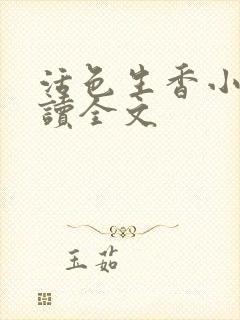 活色生香小
讀全文
玉茹